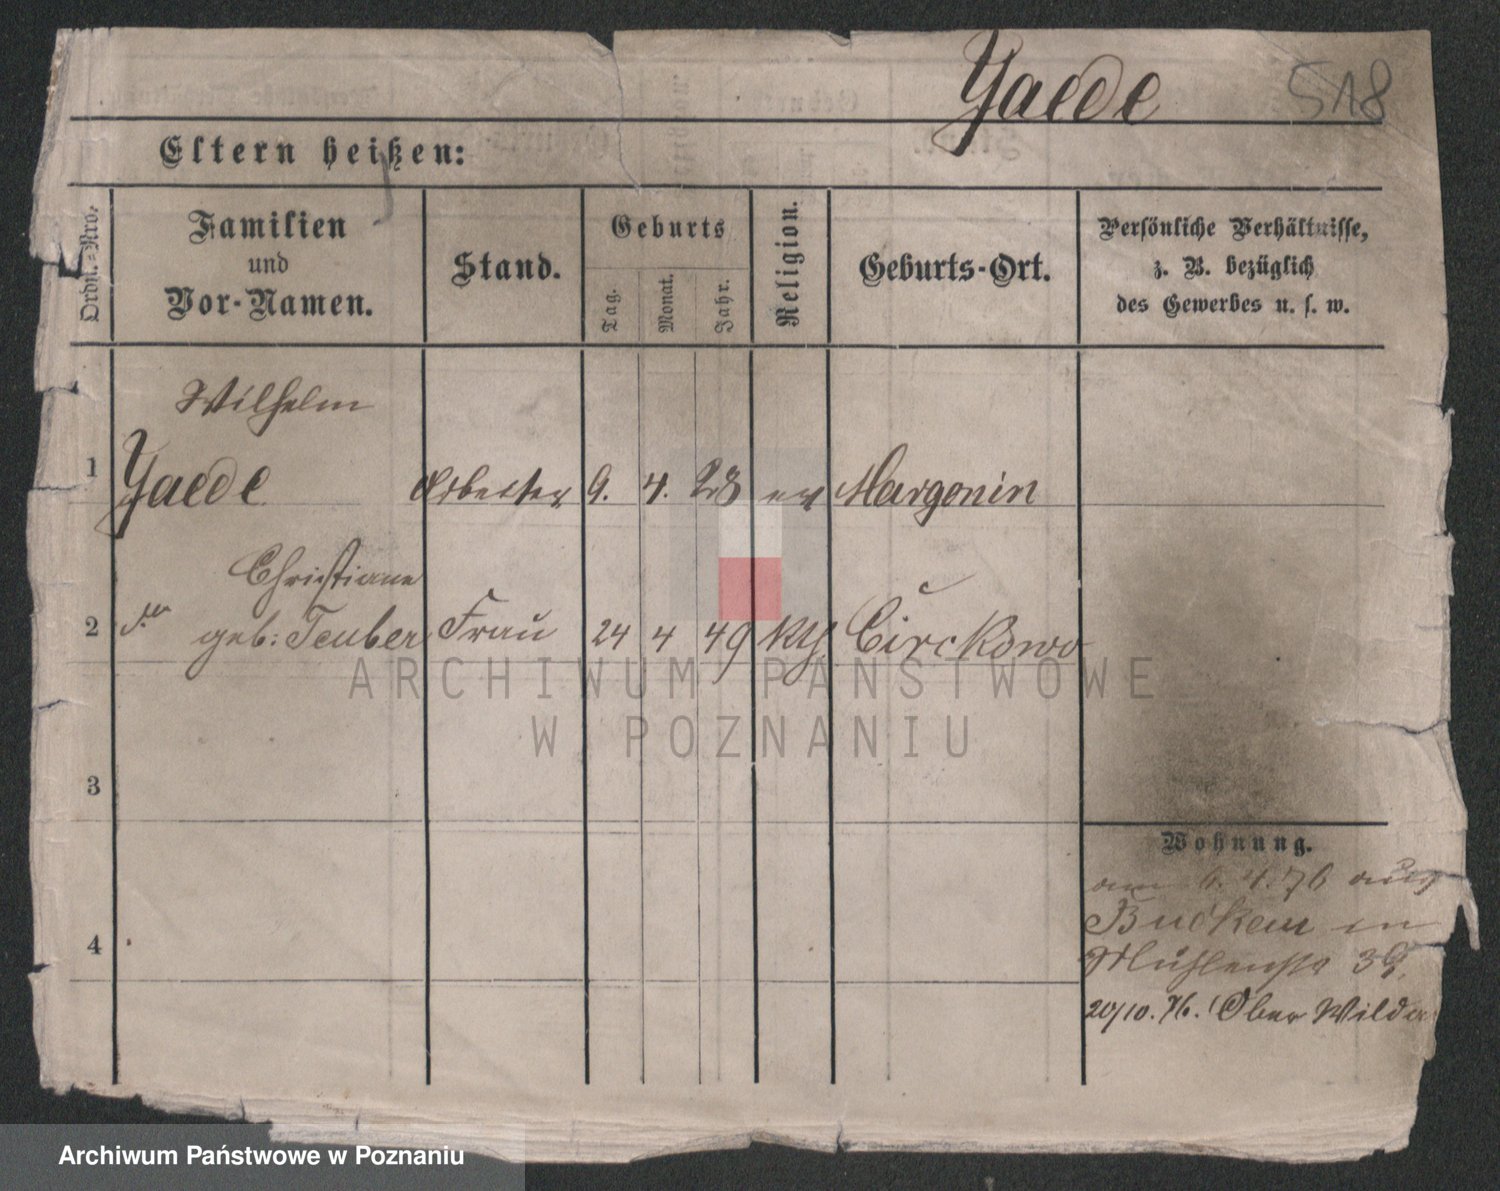 Yaede 518
Eltern heißen:
Ordn.-Nro.
Familien
und
Vor-Namen.
Stand.
Geburts
Tag.
Monat.
Jahr.
Religion.
Geburts-Ort.
Persönliche Verhältnisse,
z. B. bezüglich
des Gewerbes u. s. w.
Wilhelm
1 Yaede Arbeiter 9. 4. 28 ev Margonin
Christiane
2 geb: Teuber Frau 24 4 49 kth. Circkowo
ARCHIWUM PAŃSTWOWE
W POZNANIU
3
Wohnung.
am 6.4.76 aus
in
4
Mühlenstr 39.
20/10.76. Ober Wilda
Archiwum Państwowe w Poznaniu